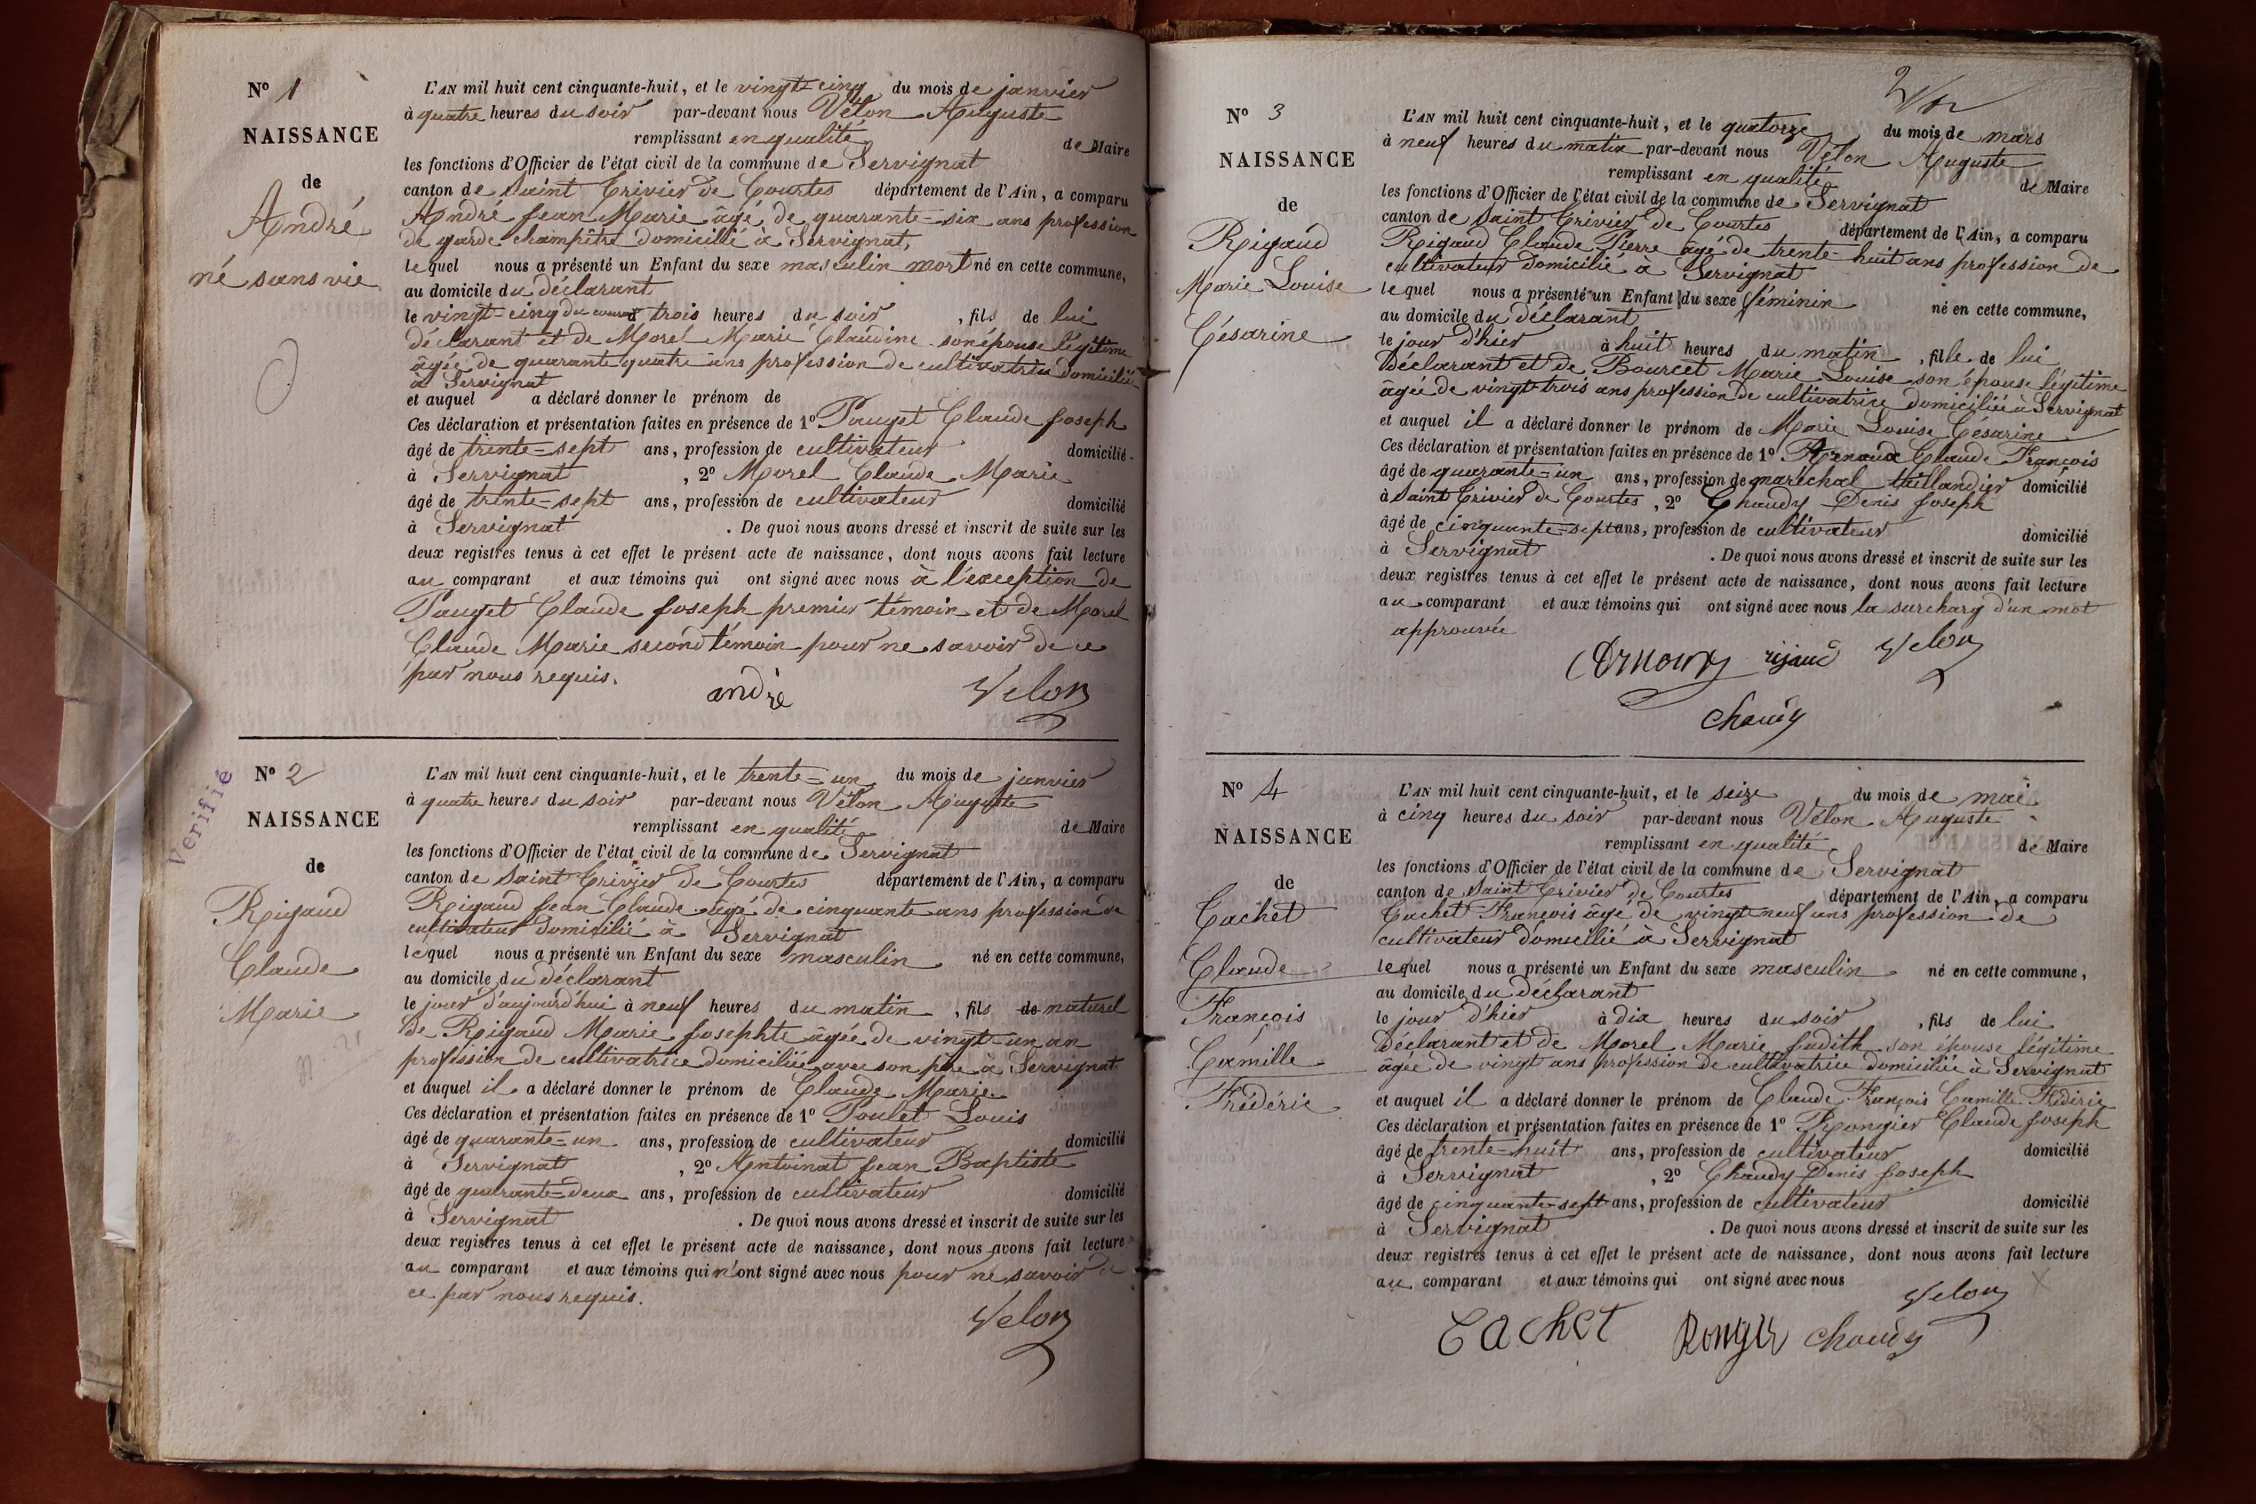 N° 1
NAISSANCE
de
André
né sans vie
L'AN mil huit cent cinquante-huit, et le vingt-cinq du mois de janvier
à quatre heures du soir par-devant nous Velon Auguste
remplissant en qualité de Maire
les fonctions d'Officier de l'état civil de la commune de Servignat
canton de Saint Trivier de Courtes département de l'Ain, a comparu
André Jean Marie âgé de quarante-six ans profession
de garde champêtre domicilié à Servignat,
lequel nous a présenté un Enfant du sexe masculin mort né en cette commune,
au domicile du déclarant
le vingt-cinq du courant à trois heures du soir, fils de lui
déclarant et de Morel Marie Claudine son épouse légitime
âgée de quarante quatre ans profession de cultivatrice domiciliée
à Servignat
et auquel a déclaré donner le prénom de
Ces déclaration et présentation faites en présence de 1° Pauget Claude Joseph
âgé de trente-sept ans, profession de cultivateur domicilié
à Servignat, 2° Morel Claude Marie
âgé de trente-sept ans, profession de cultivateur domicilié
à Servignat. De quoi nous avons dressé et inscrit de suite sur les
deux registres tenus à cet effet le présent acte de naissance, dont nous avons fait lecture
au comparant et aux témoins qui ont signé avec nous à l'exception de
Pauget Claude Joseph premier témoin et de Morel
Claude Marie second témoin pour ne savoir de ce
par nous requis.
andré Velon
Vérifié
N° 2
NAISSANCE
de
Rigaud
Claude
Marie
L'AN mil huit cent cinquante-huit, et le trente-un du mois de janvier
à quatre heures du soir par-devant nous Velon Auguste
remplissant en qualité de Maire
les fonctions d'Officier de l'état civil de la commune de Servignat
canton de Saint Trivier de Courtes département de l'Ain, a comparu
Rigaud Jean Claude âgé de cinquante ans profession de
cultivateur domicilié à Servignat
lequel nous a présenté un Enfant du sexe masculin né en cette commune,
au domicile du déclarant
le jour d'aujourd'hui à neuf heures du matin, fils de naturel
de Rigaud Marie Josephte âgée de vingt-un an
profession de cultivatrice domiciliée avec son père à Servignat
et auquel il a déclaré donner le prénom de Claude Marie
Ces déclaration et présentation faites en présence de 1° Poulet Louis
âgé de quarante-un ans, profession de cultivateur domicilié
à Servignat, 2° Antoinat Jean Baptiste
âgé de quarante-deux ans, profession de cultivateur domicilié
à Servignat. De quoi nous avons dressé et inscrit de suite sur les
deux registres tenus à cet effet le présent acte de naissance, dont nous avons fait lecture
au comparant et aux témoins qui n'ont signé avec nous pour ne savoir de
ce par nous requis.
Velon
N° 3
NAISSANCE
de
Rigaud
Marie Louise
Césarine
L'AN mil huit cent cinquante-huit, et le quatorze du mois de mars
à neuf heures du matin par-devant nous Velon Auguste
remplissant en qualité de Maire
les fonctions d'Officier de l'état civil de la commune de Servignat
canton de Saint Trivier de Courtes département de l'Ain, a comparu
Rigaud Claude Pierre âgé de trente-huit ans profession de
cultivateur domicilié à Servignat
lequel nous a présenté un Enfant du sexe féminin né en cette commune,
au domicile du déclarant
le jour d'hier à huit heures du matin, fille de lui
Déclarant et de Bourcet Marie Louise son épouse légitime
âgée de vingt trois ans profession de cultivatrice domiciliée à Servignat
et auquel il a déclaré donner le prénom de Marie Louise Césarine
Ces déclaration et présentation faites en présence de 1° Claude François
âgé de quarante-un ans, profession de maréchal taillandier domicilié
à Saint Trivier de Courtes, 2° Chaudy Denis Joseph
âgé de cinquante-sept ans, profession de cultivateur domicilié
à Servignat. De quoi nous avons dressé et inscrit de suite sur les
deux registres tenus à cet effet le présent acte de naissance, dont nous avons fait lecture
au comparant et aux témoins qui ont signé avec nous la surcharg d'un mot
approuvée
rigaud Velon
chaudy
N° 4
NAISSANCE
de
Cachet
Claude
François
Camille
Frédéric
L'AN mil huit cent cinquante-huit, et le seize du mois de mai
à cinq heures du soir par-devant nous Velon Auguste
remplissant en qualité de Maire
les fonctions d'Officier de l'état civil de la commune de Servignat
canton de Saint Trivier de Courtes département de l'Ain, a comparu
Cachet François âgé de vingt neuf ans profession de
cultivateur domicilié à Servignat
lequel nous a présenté un Enfant du sexe masculin né en cette commune,
au domicile du déclarant
le jour d'hier à dix heures du soir, fils de lui
Déclarant et de Morel Marie Judith son épouse légitime
âgée de vingt ans profession de cultivatrice domiciliée à Servignat
et auquel il a déclaré donner le prénom de Claude François Camille Fédéric
Ces déclaration et présentation faites en présence de 1° Rongier Claude Joseph
âgé de trente-huit ans, profession de cultivateur domicilié
à Servignat, 2° Chaudy Denis Joseph
âgé de cinquante-sept ans, profession de cultivateur domicilié
à Servignat. De quoi nous avons dressé et inscrit de suite sur les
deux registres tenus à cet effet le présent acte de naissance, dont nous avons fait lecture
au comparant et aux témoins qui ont signé avec nous
Velon
Cachet Rongier chaudy